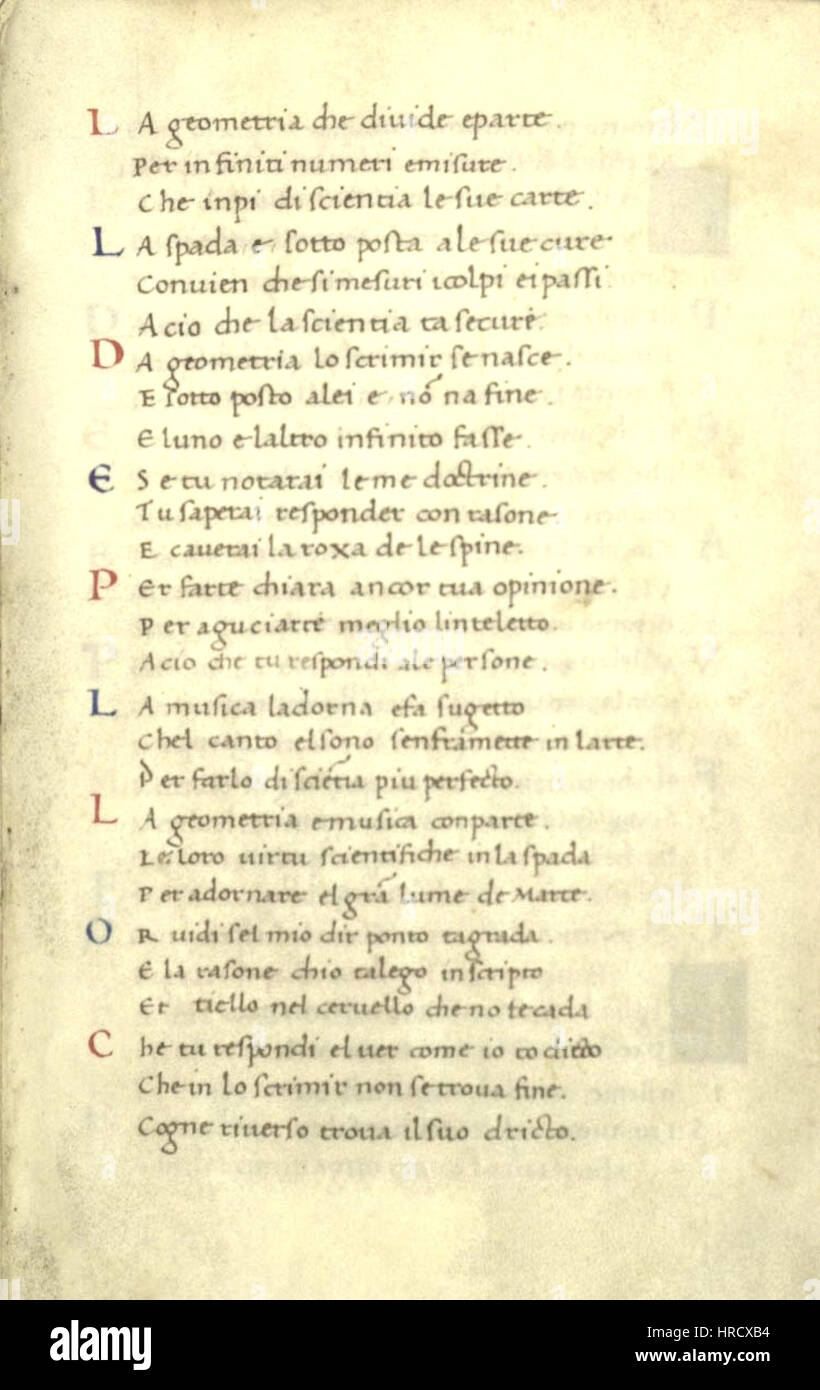 LA geometria che diuide eparte.
Per infiniti numeri emisure.
Che inpi di scientia le sue carte.
LA spada e sotto posta a le sue cure
Conuien che si mesuri icolpi ei passi
Acio che la scientia ta secure.
DA geometria lo scrimir se nasce.
E sotto posto alei e nō na fine.
E luno e laltro infinito fasse.
E Se tu notarai le me doctrine.
Tu saperai responder con rasone
E cauerai la roxa de le spine.
PEr farte chiara ancor tua opinione.
Per aguciarte meglio linteletto.
Acio che tu respondi ale persone.
LA musica ladorna efa sugetto
Chel canto elsono senframette in larte.
Per farlo di sciētia piu perfecto.
LA geometria emusica conparte.
Le loro uirtu scientifiche in la spada
Per adornare el grā lume de Marte.
OR uidi sel mio dir ponto tagrada.
E la rasone chio talego in scripto
Et tiello nel ceruello che no te cada
Che tu respondi el uer come io to dicto
Che in lo scrimir non se troua fine.
Cogne riuerso troua il suo dricto.
alamy
Image ID: HRCXB4
www.alamy.com